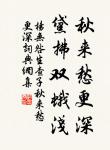 秋来愁更深
黛拂双蛾浅
揚無咎生查子秋来愁
更深詞典網集